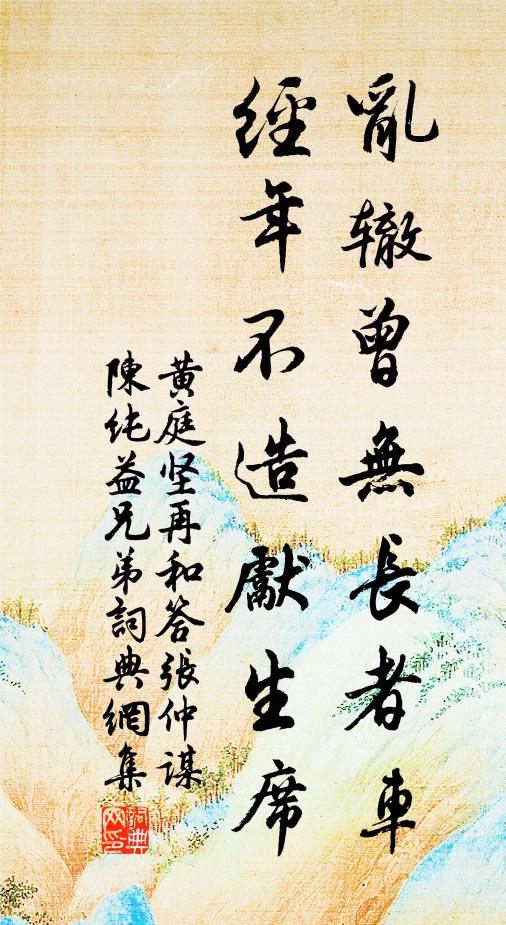 亂辙曾無長者車
經年不造獻生席
黄庭坚再和答張仲謀
陳纯益兄弟詞典網集
詞典
网印